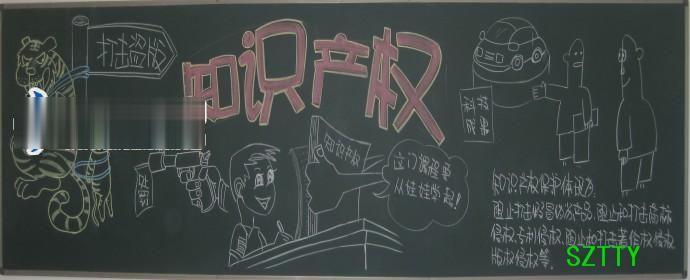 打击盗版
知识产权
科技
成果
知识产权
这门课程要
从娃娃学起!
知识产权保护体现为:
阻止打击假冒伪劣产品,阻止和打击商标
侵权,专利侵权,阻止和打击著作权侵权
版权侵权等。
SZTTY